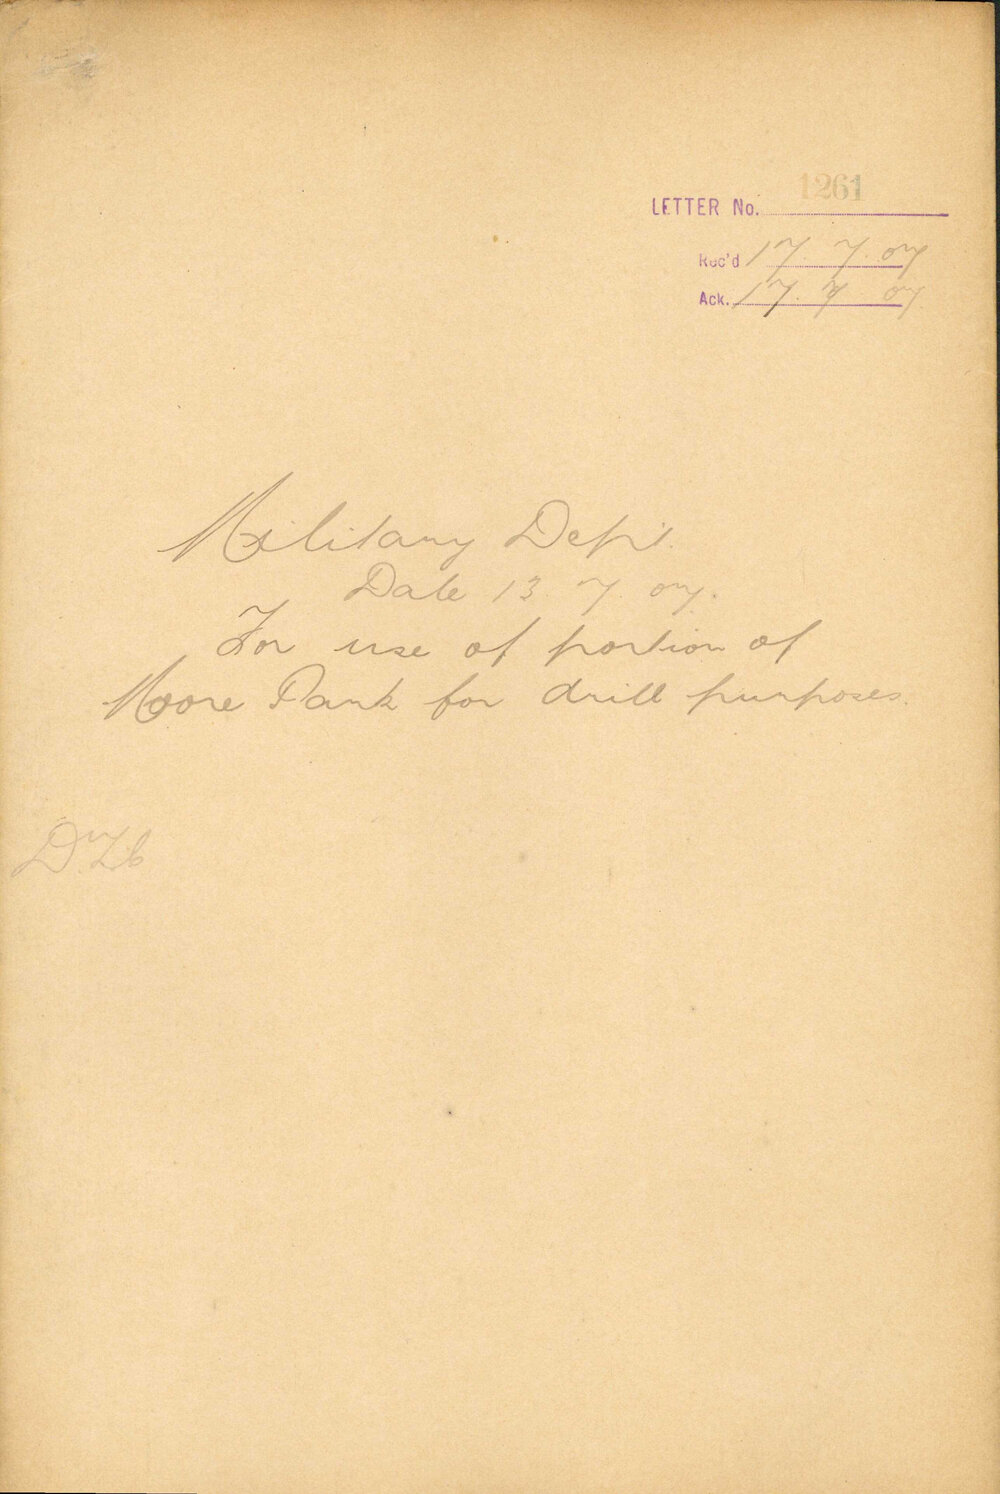 LETTER No. 1261
Rec'd 17. 7. 07
Ack. 17. 7. 07.
Military Dept.
Date 13. 7. 07.
For use of portion of
Moore Park for drill purposes.